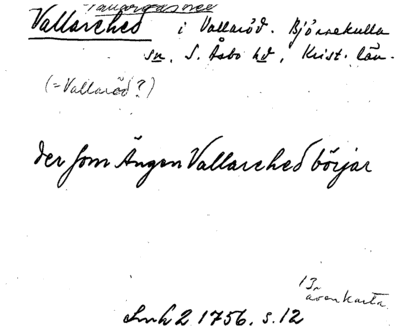 Vallarched i Vallaröd. Björnekulla
sn, S. Åsbo hd, Krist. län.
(= Vallaröd?)
der som Ängen Vallarched börjar
13
även karta
Lmh 2 1756. s. 12